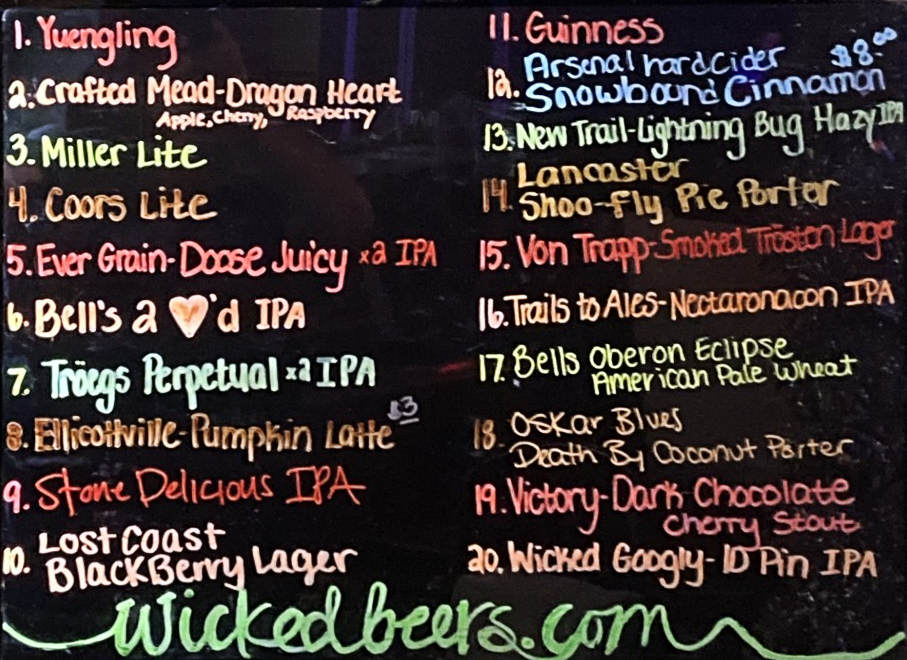 1. Yuengling
2. Crafted Mead-Dragon Heart
Apple, Cherry, Raspberry
3. Miller Lite
4. Coors Lite
5. Ever Grain-Doose Juicy x2 IPA
6. Bell's 2 ♥'d IPA
7. Tröegs Perpetual x2 IPA
8. Ellicottville-Pumpkin Latte $3
9. Stone Delicious IPA
10. Lost Coast
BlackBerry Lager
11. Guinness
12. Arsenal hard Cider $8.00
Snowbound Cinnamon
13. New Trail-Lightning Bug Hazy IPA
14. Lancaster
Shoo-Fly Pie Porter
15. Von Trapp-Smoked Trosten Lager
16. Trails to Ales-Nectaronacon IPA
17. Bells Oberon Eclipse
American Pale Wheat
18. Oskar Blues
Death By Coconut Porter
19. Victory-Dark Chocolate
Cherry Stout
20. Wicked Googly-10 Pin IPA
wickedbeers.com